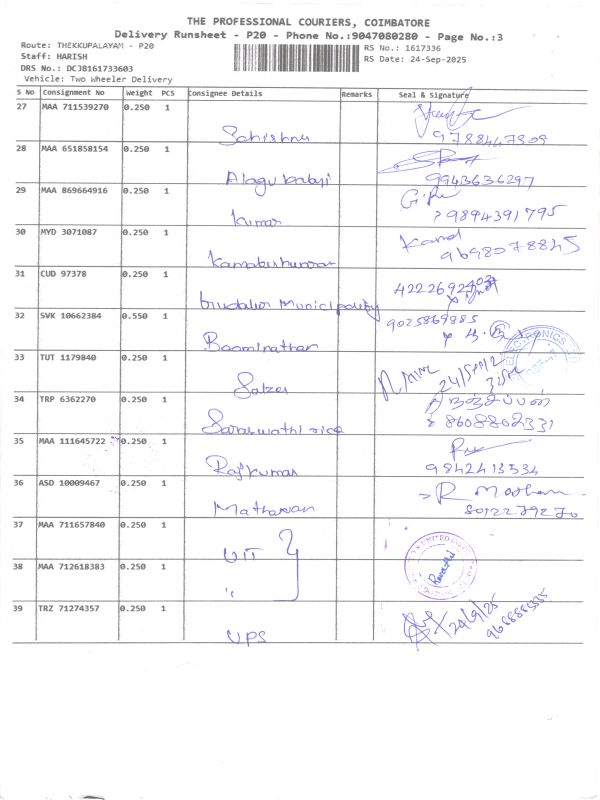 THE PROFESSIONAL COURIERS, COIMBATORE
Delivery Runsheet - P20 - Phone No.:9047080280 - Page No.:3
Route: THEKKUPALAYAM - P20
RS No.: 1617336
Staff: HARISH
RS Date: 24-Sep-2025
DRS No.: DCJB161733603
Vehicle: Two Wheeler Delivery
S No Consignment No Weight PCS Consignee Details Remarks Seal & Signature
27 MAA 711539270 0.250 1
Sahishnu 9788447809
28 MAA 651858154 0.250 1
9943636297
29 MAA 869664916 0.250 1
Kumar 9894391795
30 MYD 3071087 0.250 1
9698078845
31 CUD 97378 0.250 1
Municipality
32 SVK 10662384 0.550 1 9025869885
Boominathan
33 TUT 1179840 0.250 1
Salzer 24/Sep/2
34 TRP 6362270 0.250 1
Saraswathi rice 8608802331
35 MAA 111645722 0.250 1
Rajkumar 9842413534
36 ASD 10009467 0.250 1
Mathavan 8012279270
37 MAA 711657840 0.250 1
UIT
38 MAA 712618383 0.250 1
"
39 TRZ 71274357 0.250 1
UPS 24/9/25